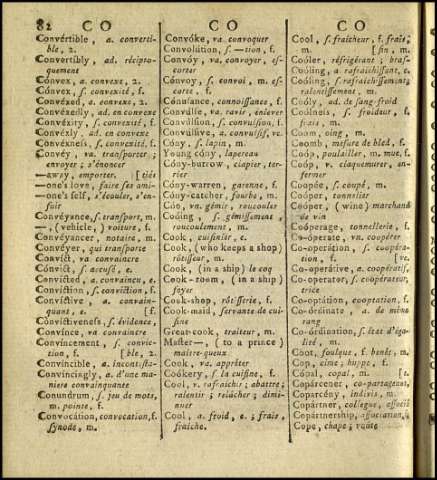 82 CO CO CO
Convértible, a. converti-
ble, 2.
Convertibly, ad. récipro-
quement
Cónvex, a. convexe, 2.
Cónvex, s. convexité, f.
Convéxed, a. convexe, 2.
Convéxedly, ad. en convexe
Convéxity, s. convexité, f.
Convéxly, ad. en convexe
Convéxness, s. convexité, f.
Convéy, va. transporter;
envoyer; s'énoncer
—away, emporter. [tiés
—one's love, faire ses ami-
—one's self, s'écouler, s'en-
fuir
Convéyance, s. transport, m.
—, (vehicle,) voiture, f.
Convéyancer, notaire, m.
Convéyer, qui transporte
Convíct, va. convaincre
Cónvict, s. accusé, e.
Convícted, a. convaincu, e.
Convíction, s. conviction, f.
Convíctive, a. convain-
quant, e. [f.
Convíctiveness, s. évidence,
Convínce, va. convaincre
Convíncement, s. convic-
tion, f. [ble, 2.
Convíncible, a. incontesta-
Convíncingly, a. d'une ma-
niere convainquante
Conundrum, s. jeu de mots,
m. pointe, f.
Convocátion, convocation, f.
synode, m.
Convóke, va. convoquer
Convolútion, s. —tion, f.
Convóy, va. convoyer, es-
corter
Cónvoy, s. convoi, m. es-
corte, f.
Cónusance, connoissance, f.
Convúlse, va. ravir, enlever
Convúlsion, s. convulsion, f.
Convúlsive, a. convulsif, ve.
Cóny, s. lapin, m.
Young cóny, lapereau
Cóny-burrow, clapier, ter-
rier
Cóny-warren, garenne, f.
Cóny-catcher, fourbe, m.
Cóo, vn. gémir, roucouler
Coóing, s. gémissement,
roucoulement, m.
Cook, cuisinier, e.
Cook, (who keeps a shop)
rôtisseur, m.
Cook, (in a ship) le coq
Cook-room, (in a ship)
foyer
Cook-shop, rôtisserie, f.
Cook-maid, servante de cui-
sine
Great-cook, traiteur, m.
Master—, (to a prince)
maître-queux
Cook, va. apprêter
Coókery, s. la cuisine, f.
Cool, v. rafraichir; abattre;
ralentir; relâcher; dimi-
nuer
Cool, a. froid, e; frais,
fraîche.
Cool, s. fraîcheur, f. frais,
m. [fin, m.
Coóler, réfrigérant; bras-
Coóling, a. rafraichissant, e.
Coóling, s. rafraichissement;
ralentissement, m.
Coóly, ad. de sang-froid
Coólness, s. froideur, f.
frais, m.
Coom, oing, m.
Coomb, mesure de bled, f.
Coóp, poulailler, m. mue, f.
Coóp, v. claquemurer, en-
fermer
Coopée, s. coupé, m.
Coóper, tonnelier
Coóper, (wine) marchand
de vin
Coóperage, tonnellerie, f.
Co-óperate, vn. coopérer
Co-operátion, s. coopéra-
tion, f. [ve.
Co-óperative, a. coopératif,
Co-óperator, s. coopérateur,
trice
Co-optátion, cooptation, f.
Co-órdinate, a. de même
rang
Co-ordinátion, s. état d'éga-
lité, m.
Coot, foulque, f. benêt, m.
Cop, cime; huppe, f.
Cópal, copal, m.
Copárcener, co-partageant,
Copárceny, indivis, m.
Copártner, collegue, associé
Copártnership, association,
Cope, chape; voûte